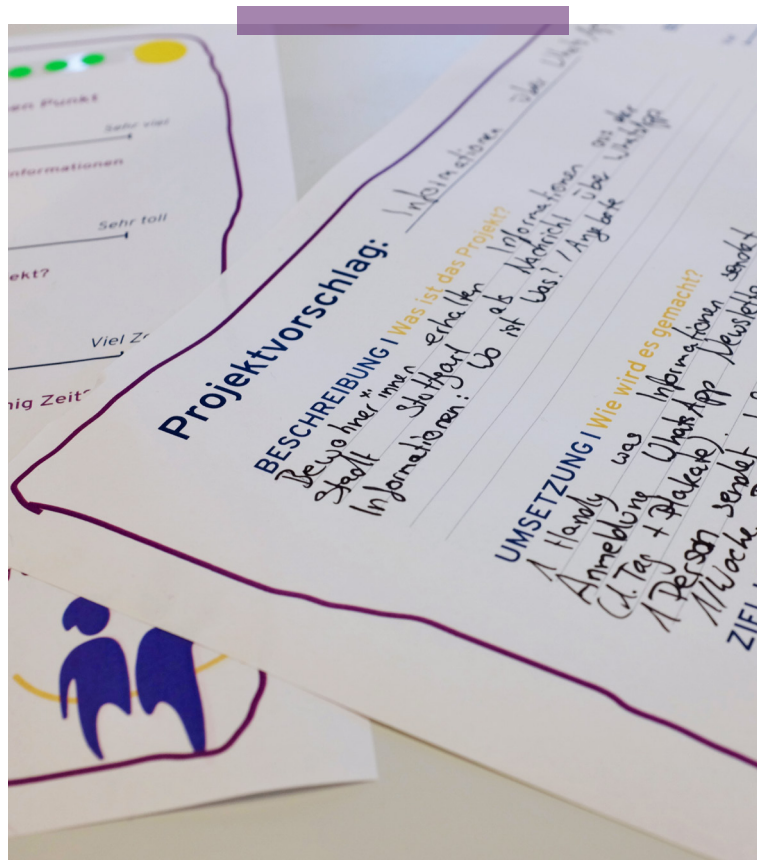 en Punkt
Sehr viel
nformationen
Sehr toll
ekt?
Viel Ze
nig Zeit
Projektvorschlag: Informationen über WhatsApp
BESCHREIBUNG I Was ist das Projekt?
Bewohner*innen erhalten Informationen aus der
Stadt Stuttgart als Nachricht über WhatsApp
Informationen: Wo ist was? / Angebote
UMSETZUNG I Wie wird es gemacht?
1 Handy was Informationen sendet
Anmeldung WhatsApp Newslette
(1. Tag + Plakate).
1 Person sendet
1/Woche
ZIEL